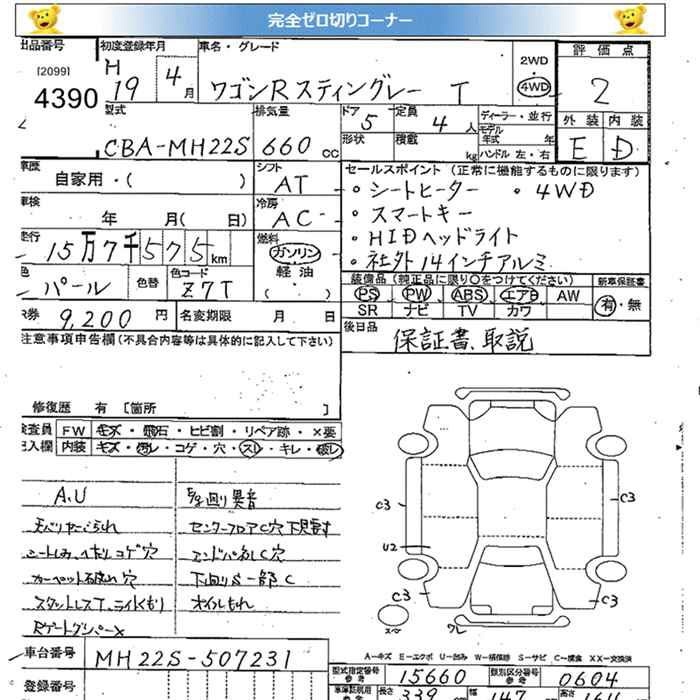 完全ゼロ切りコーナー
出品番号 初度登録年月 車名・グレード 2WD 評価点
[2099] H 19 4月 ワゴンRスティングレー T 4WD 2
4390
型式 排気量 ドア 5 定員 4人 ディーラー・並行 外装 内装
CBA-MH22S 660cc 形状 積載 kg モデル年式 年 ハンドル 左・右 E D
車歴 シフト セールスポイント(正常に機能するものに限ります)
自家用・( ) AT ・シートヒーター ・4WD
車検 冷房 ・スマートキー
年 月( 日) AC ・HIDヘッドライト
走行 燃料 ・社外14インチアルミ
15万7千575km ガソリン
軽油
( )
色 パール 色替 色コード Z7T
装備品(純正品に限り○をつけてください) 新車保証書
PS PW ABS エアB AW 有・無
SR ナビ TV カワ
R券 9,200円 名変期限 月 日 後日品 保証書、取説
注意事項申告欄(不具合内容等は具体的に記入して下さい)
修復歴 有 [箇所 ]
検査員 FW キズ・飛石・ヒビ割・リペア跡・×要
記入欄 内装 キズ・汚レ・コゲ・穴・スレ・キレ・破レ
A.U 異音
センターフロアC穴
シートしみ、コゲ穴
C穴
カーペット 穴 下回りS一部C
スタッドレスT、ライトくもり オイルもれ
C3
C3
U2
C3
C3
ワレ
A-キズ E-エクボ U-凹み W-補修跡 S-サビ C-腐食 XX-交換済
車台番号 MH22S-507231
型式指定番号 参考 15660 類別区分番号 参考 0604
登録番号
長さ 339 幅 147